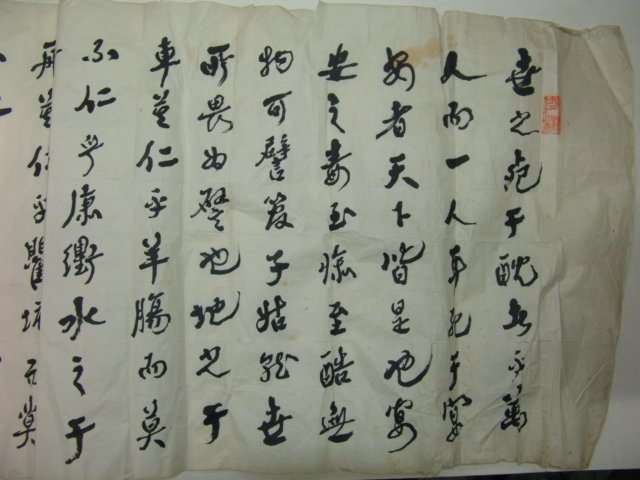 世之死于酖者千萬
人而一人耳死于宴
安者天下皆是也宴
安之毒至慘至酷無
物可譬子姑就世
所畏為譬也地之于
車莫仁乎羊腸而莫
不仁乎康衢水之于
舟莫仁乎瞿塘而莫